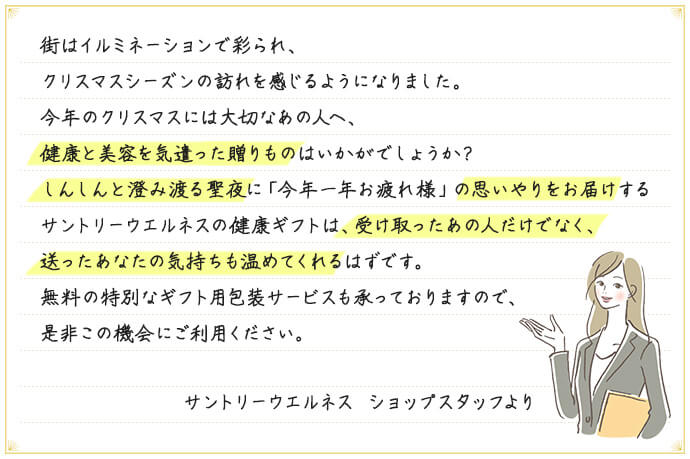 街はイルミネーションで彩られ、
クリスマスシーズンの訪れを感じるようになりました。
今年のクリスマスには大切なあの人へ、
健康と美容を気遣った贈りものはいかがでしょうか?
しんしんと澄み渡る聖夜に「今年一年お疲れ様」の思いやりをお届けする
サントリーウエルネスの健康ギフトは、受け取ったあの人だけでなく、
送ったあなたの気持ちも温めてくれるはずです。
無料の特別なギフト用包装サービスも承っておりますので、
是非この機会にご利用ください。
サントリーウエルネス ショップスタッフより